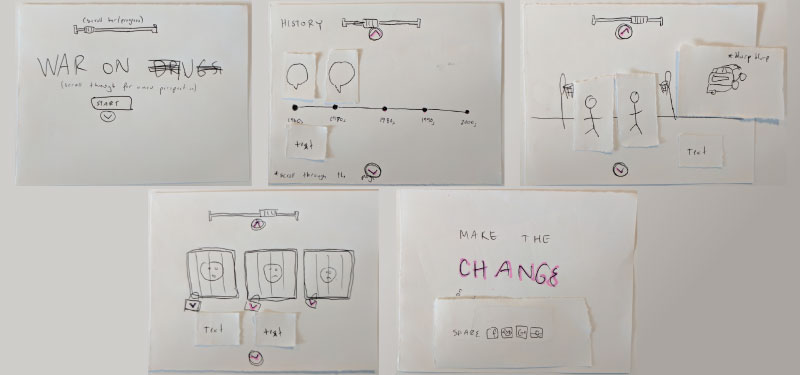 (scroll bar/progress)
WAR ON DRUGS
(scroll through for more perspective)
START
HISTORY
1960s 1970s 1980s 1990s 2000s
text
*scroll through the page
*blurp blurp
Text
Text
text
MAKE THE
CHANGE
SHARE f